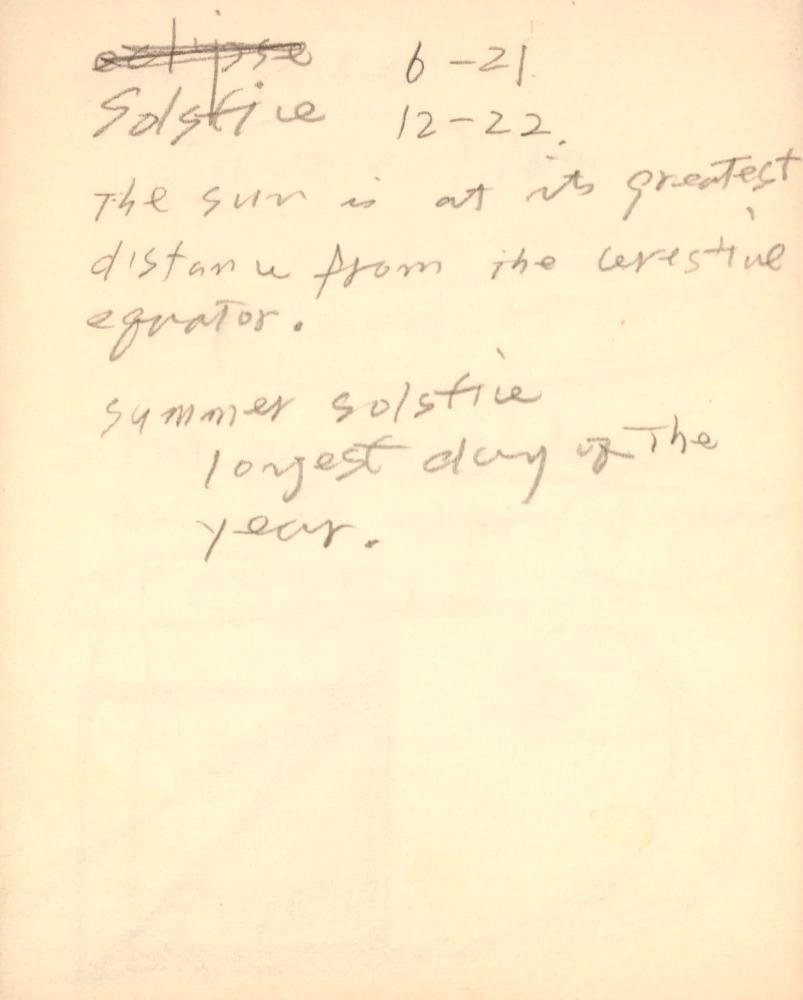 eclipse 6-21
Solstice 12-22.
The sun is at its greatest
distance from the cerestial
equator.
summer solstice
longest day of The
year.